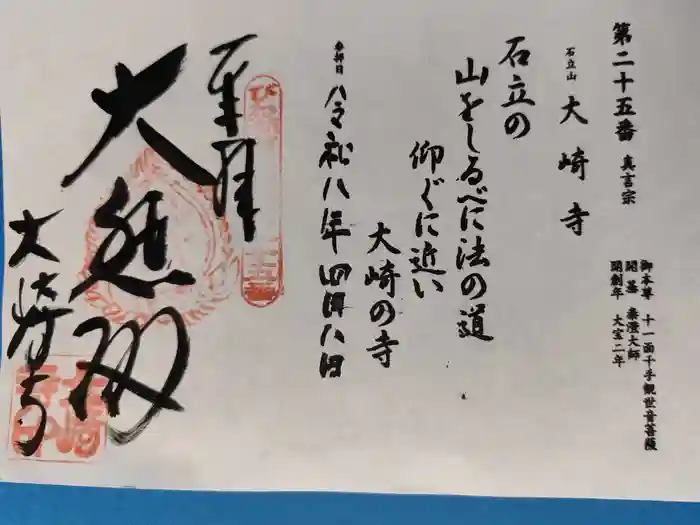 第二十五番 真言宗
石立山 大崎寺
御本尊 十一面千手観世音菩薩
開基 泰澄大師
開創年 大宝二年
石立の
山をしるべに法の道
仰ぐに近い
大崎の寺
参拝日 令和八年四月八日
奉拝
大悲閣
大崎寺